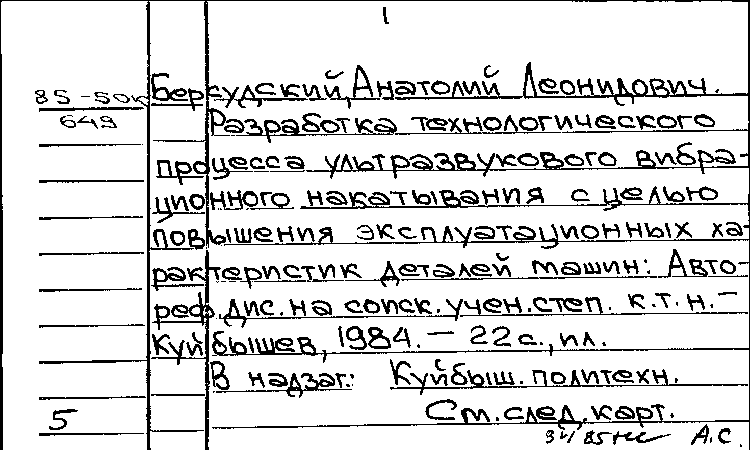 1
85-50к Берсудский, Анатолий Леонидович.
649 Разработка технологического
процесса ультразвукового вибра-
ционного накатывания с целью
повышения эксплуатационных ха-
рактеристик деталей машин: Авто-
реф. дис. на соиск. учен. степ. к.т.н. –
Куйбышев, 1984. – 22 с., ил.
В надзаг.: Куйбыш. политехн.
5 См. след. карт.
А.С.